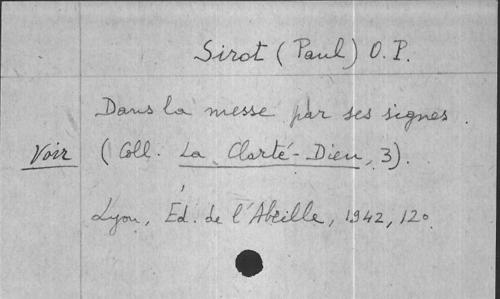 Sirot (Paul) O.P.
Dans la messe par ses signes.
Voir (Coll. La Clarté-Dieu, 3).
Lyon, Éd. de l'Abeille, 1942, 12o